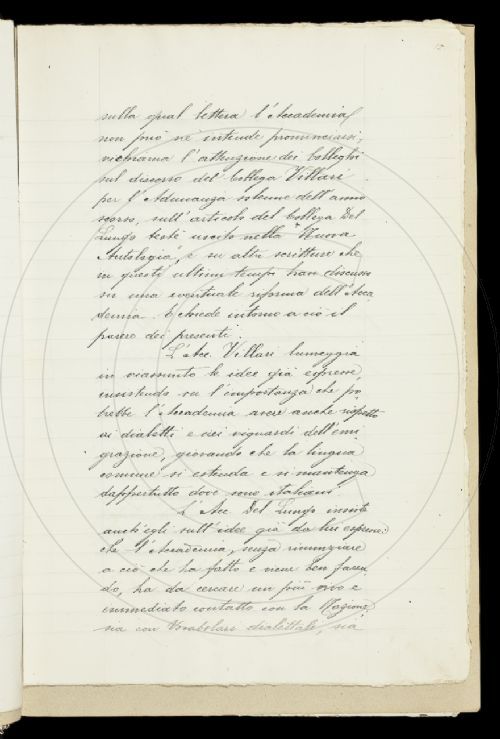 sulla qual lettera l'Accademia
non può nè intende pronunciarsi,
richiama l'attenzione dei Colleghi
sul discorso del Collega Villari
per l'Adunanza solenne dell'anno
scorso, sull'articolo del Collega Del
Lungo testè uscito nella "Nuova
Antologia", e su altre scritture che
in questi ultimi tempi han discusso
su una eventuale riforma dell'Acca
demia. E chiede intorno a ciò il
parere dei presenti.
L'Acc. Villari lumeggia
in riassunto le idee già espresse
insistendo su l'importanza che po
trebbe l'Accademia avere anche rispetto
ai dialetti e nei riguardi dell'emi
grazione, giovando che la lingua
comune si estenda e si mantenga
dappertutto dove sono italiani.
L'Acc. Del Lungo insiste
anch'egli sull'idee già da lui espresse:
che l'Accademia, senza rinunziare
a ciò che ha fatto e viene ben facen
do, ha da cercare un più vivo e
immediato contatto con la Nazione,
sia con Vocabolari dialettali, sia